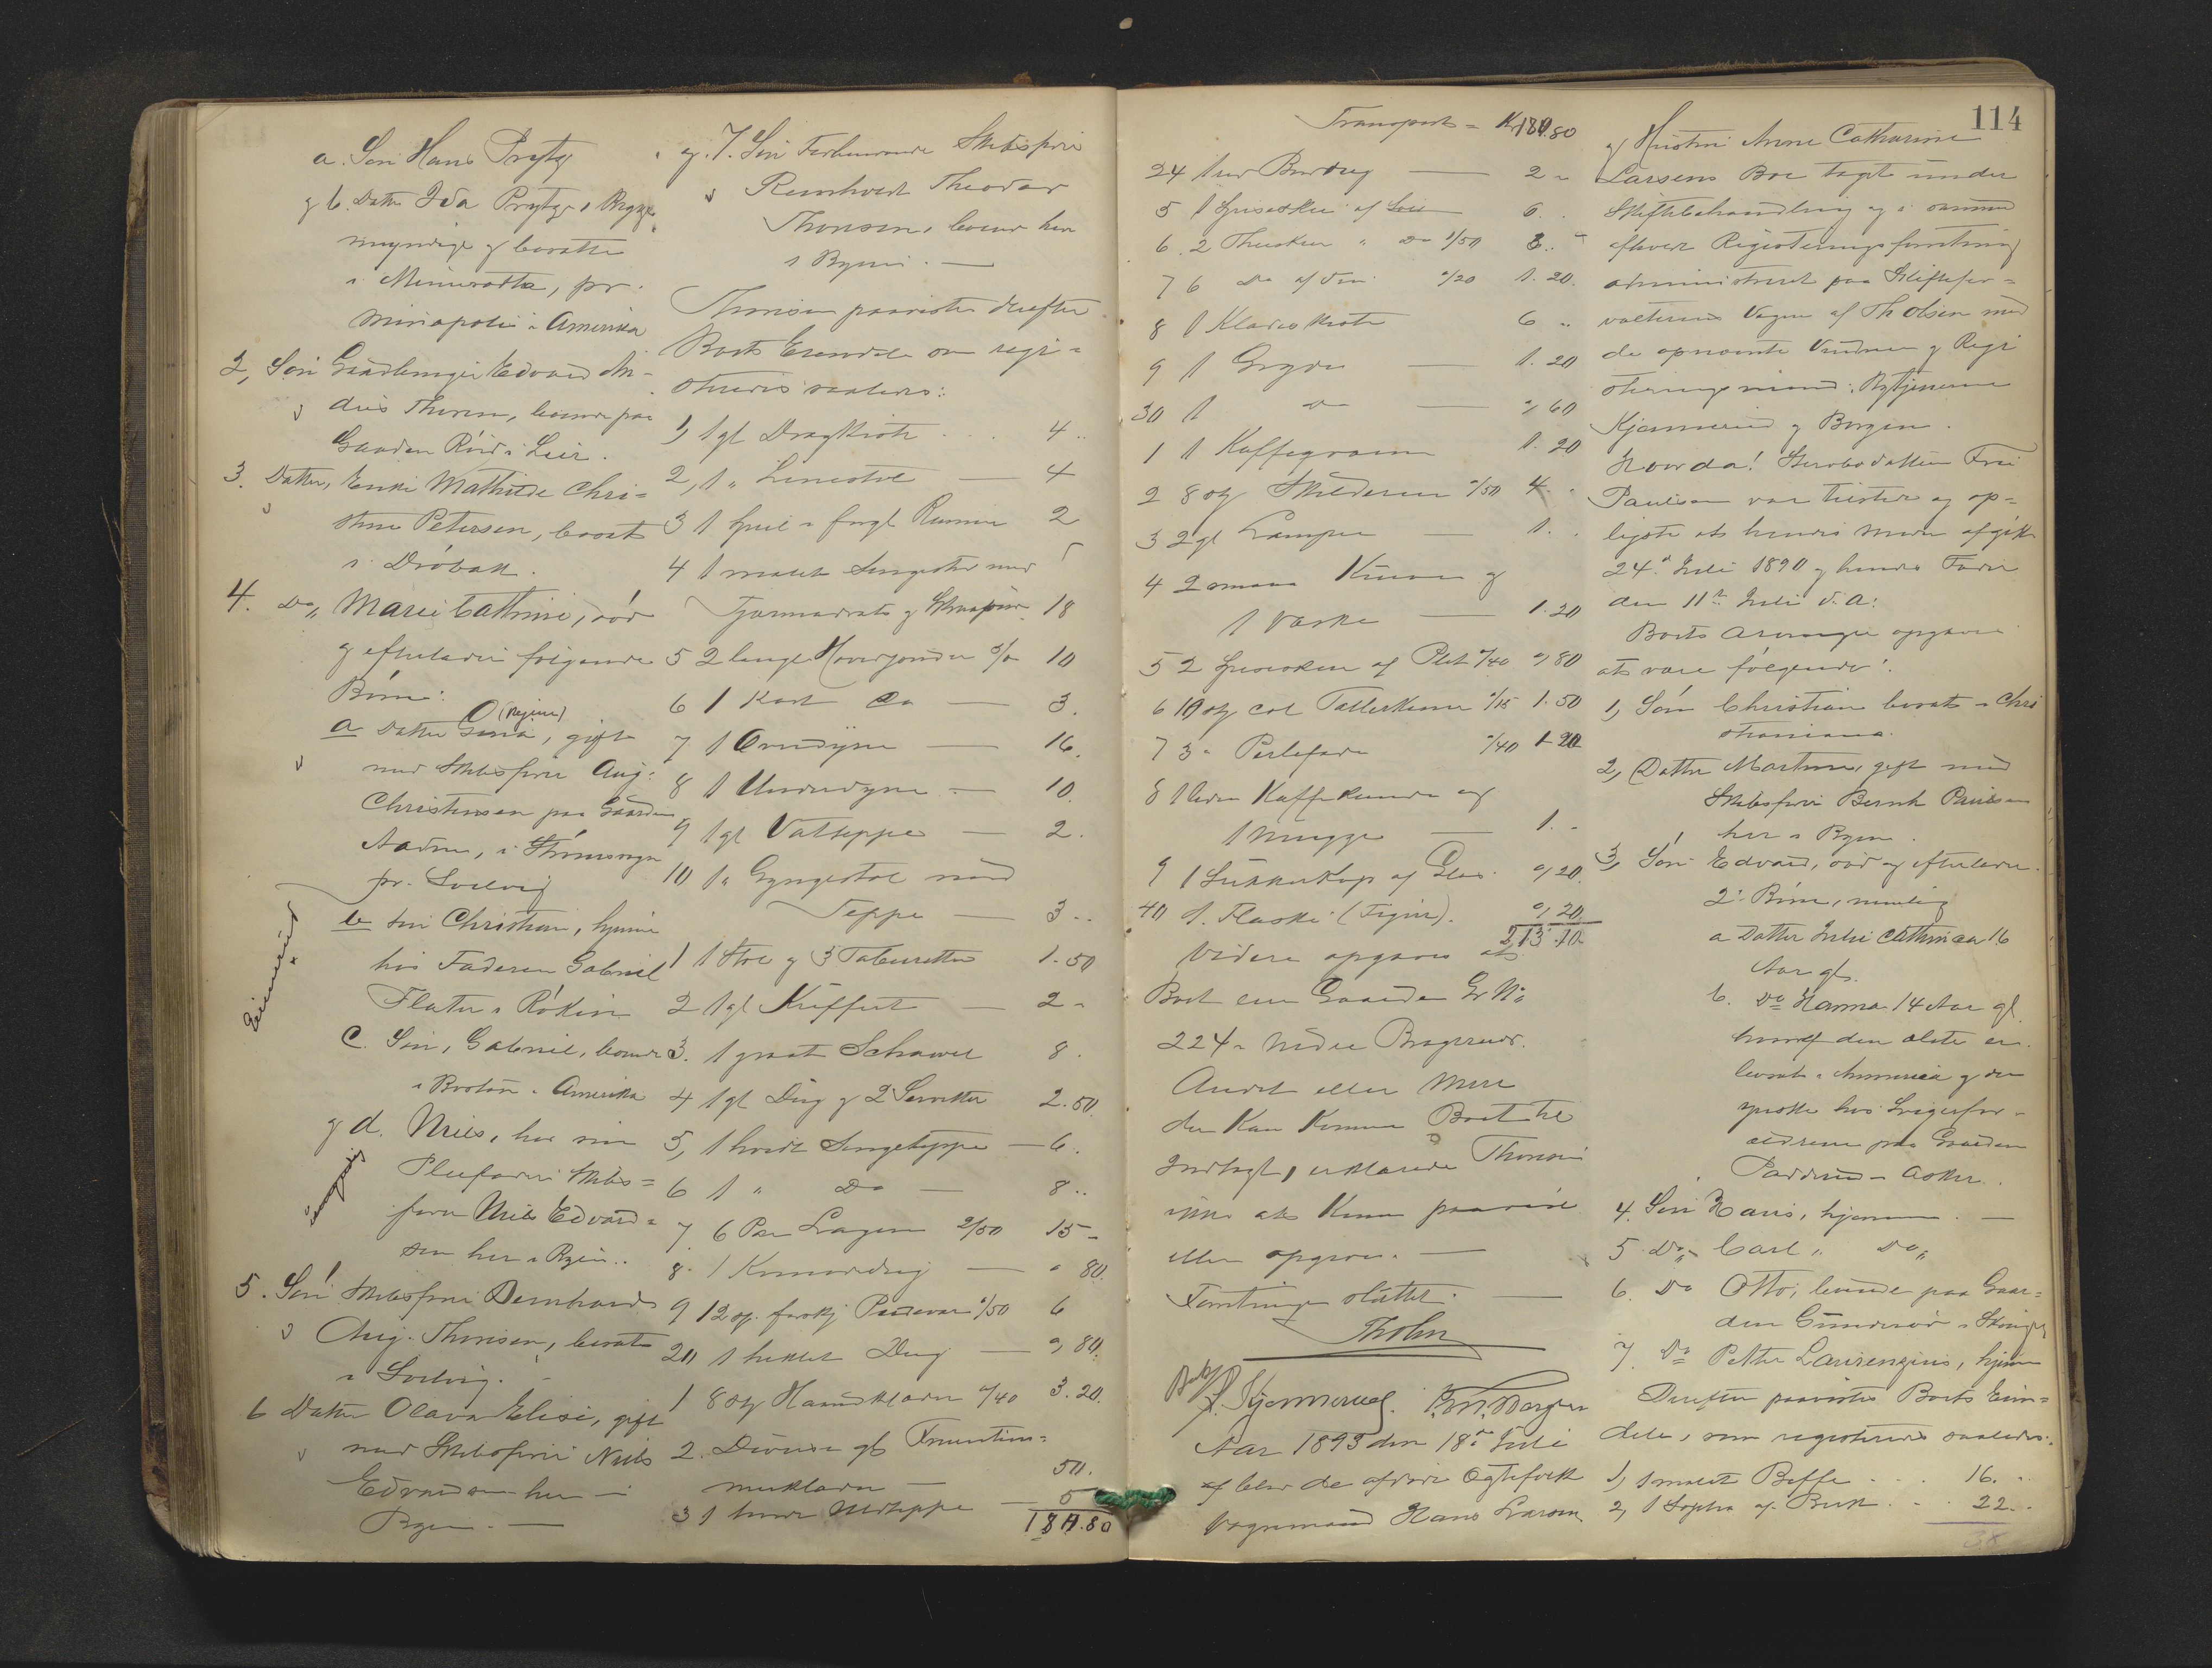 a. Søn Hans Prytz
og b. Datter Ida Prytz, begge
myndige og bosatte
i Minnesotta, pr.
Miniapolis i Amerika
2, Søn Gaardbruger Edvard An-
dreas Thoresen, boende paa
Gaarden Röed i Lier.
3. Datter, Enke Mathilde Chri-
stine Petersen, bosat
i Dröbak.
4. Do, Maren Cathrine, död
og efterlader følgende
Børn:
(Regine)
a Datter Gina, gift
med Skibsfører Aug.
Christensen paa Gaarden
i Strømsøgn
pr. Svelvig
b Søn Christian, hjemme
hos Faderen Gabriel
i Röken
c. Søn, Gabriel, boende
i Boston i Amerika
og d. Niels, hos sin
Pleefader Skibs=
fører Niels Edvard=
sen her i Byen.
5. Søn Skibsfører Bernhard
Aug. Thoresen, bosat
i Svelvig.
6 Datter Olava Elise, gift
med Skibsfører Niels
Edvardsen her i
Byen. —
og 7. Søn Forhenværende Skibsfører
Reinhardt Theodor
Thoresen, boende her
i Byen. —
Thoresen paaviste derefter
Boets Eiendele som regi=
streres saaledes:
1, 1 gl Dragkiste 4 ..
2, 1 " Lænestol — 4
3 1 Speil i forgl Ramme 2
4 1 malet Sengested med
og 18
5 2 lange Hovedpuder 5/a 10
6 1 kort Do — 3.
7 1 Overdyne — 16.
8 1 Underdyne — 10.
9 1 gl Vatteppe — 2.
10 1 " Gyngestol med
Teppe — 3 ..
1 1 Stol og 3 Taburetter 1.50
2 1 gl Kuffert — 2 "
3. 1 graat Schawl 8.
4 1 gl Dug og 2 Servietter 2.50.
5, 1 hvidt Sengeteppe — 6.
6 1 " Do — 8 ..
7 6 Par Lagen 2/50 15 -
8. 1 — " 80.
9 12 st. forskj Pudevar "/50 6
20 1 heklet Dug — " 80.
1 8 st Haandklæder "/40 3.20.
2. Diverse gl Fruentim=
merklæder — 50.
3 1 — 5
184.80
114
Transport = Kr 184.80
24 1 Bordteg — 2 "
5 1 Spiseskee af Sølv — 6.
6. 2 Theskeer " Do 1/50 3. "
7 6 Do af "/20 1.20.
8 1 Klædeskiste 6 "
9 1 Gryde — 1.20
30 1 Do — " 60
1 1 Kaffe 1.20
2 8 st Skilderier "/50 4. "
3 2 gl Lamper — 1. "
4 2 smaa og
1 Vaske — 1.20
5 2 Spiseskeer af Plet "/40 " 80
6 10 st col Tallerkener "/15 1.50
7 3 " "/40 1.20
8 1 Kaffekande og
1 Mugge — 1. "
9 1 Sukkerkop af Glas " 20.
40 1. Flaske " 20.
213.10
Videre opgaves at
Boet eier Gaarden Gr No
224 i Nedre Bragernes.
Andet eller mere
der kan komme Boet til
Indtægt, erklærede Thoresen
ikke at kunne paavise
eller opgive. —
Forretningen sluttet. —
ThOlsen
A. Kjemmerud.
Aar 1893 den 18de Juli
blev de afdøde Ægtefolk
Vognmand Hans Larsen
og Hustru Anne Catharine
Larsens Boe tagt under
Skiftebehandling og i samme
afholdt Registreringsforretning
administreret paa Skiftefor=
valterens Vegne af Th Olsen med
de opnævnte Vidner og Regi
streringsmænd: Bytjenerne
Kjemmerud og Borgen.
Hvorda! Sterbodatteren Fru
Paulsen var tilstede og op=
lyste at hendes Moder afgik
24de Juli 1890 og hendes Fader
den 11te Juli d. A:
Boets Arvinger opgaves
at være følgende:
1, Søn Christian bosat i Chri
stiania.
2, Datter Martine, gift med
Skibsfører Bernh Paulsen
her i Byen.
3, Søn Edvard, død og efterlader
2 Børn, nemlig
a Datter Julie Cathrine 16
Aar gl.
b. Do Hanna 14 Aar gl.
hvoraf den ælste er
bosat i Amerika og den
yngste hos Svigerfor=
ældrene paa Gaarden
i Asker.
4. Søn Hans, hjemme. —
5 Do " Carl " Do "
6. Do Otto, boende paa Gaar=
den i Skouger
7. Do Petter Laurenzius, hjemme
Derefter paavistes Boets Eien=
dele, som registreres saaledes:
1, 1 malet Boffe 16. "
2, 1 Sopha af Birk 22. "
38